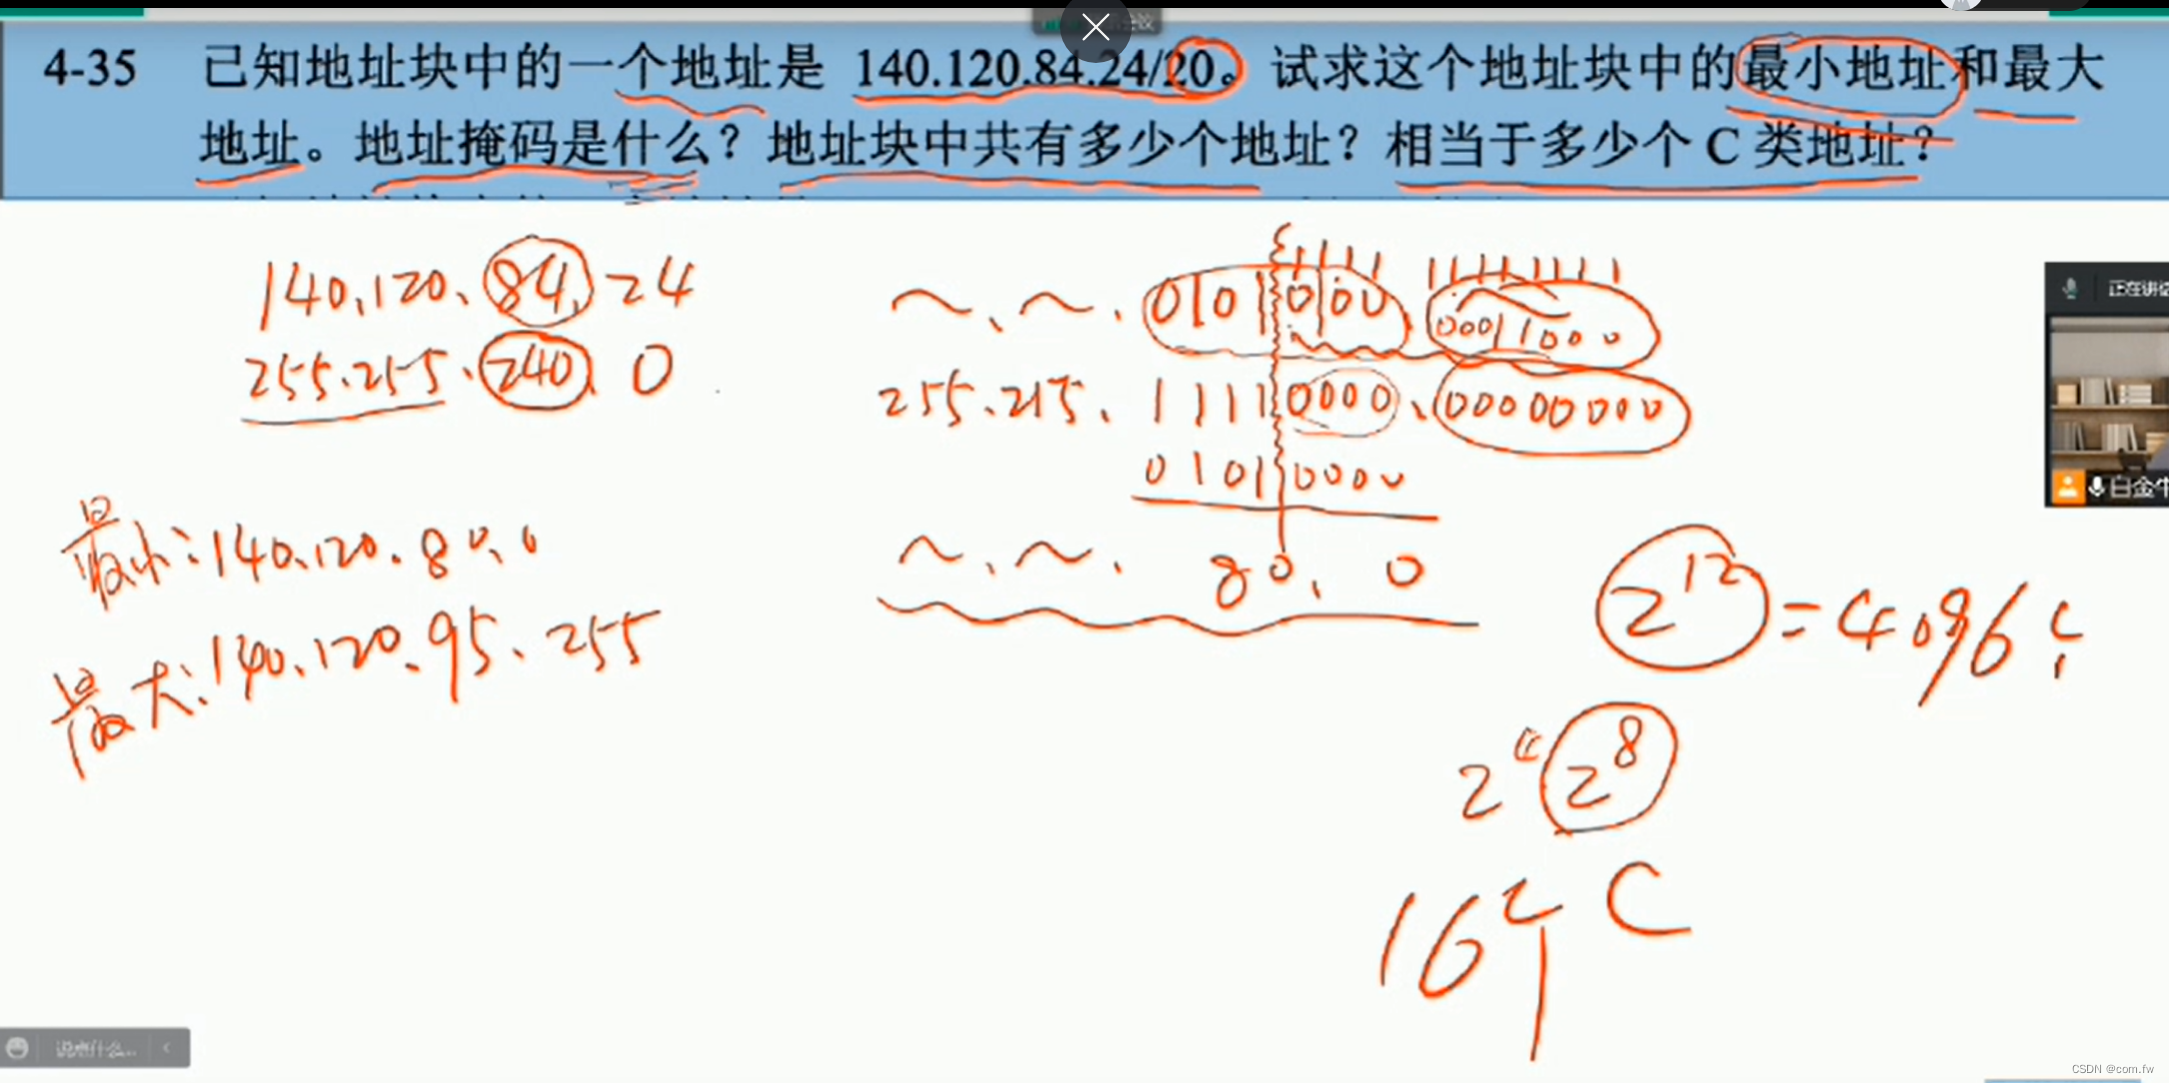 4-35 已知地址块中的一个地址是 140.120.84.24/20。试求这个地址块中的最小地址和最大
地址。地址掩码是什么？地址块中共有多少个地址？相当于多少个 C 类地址？
140.120.84.24
255.255.240.0
最小:140.120.80.0
最大:140.120.95.255
1111 11111111
~.~.01010100 00011000
255.255.11110000.00000000
01010000
~.~.80.0
2^12=4096个
2^4 2^8
16个C
正在讲话
说点什么...
CSDN @com.fw